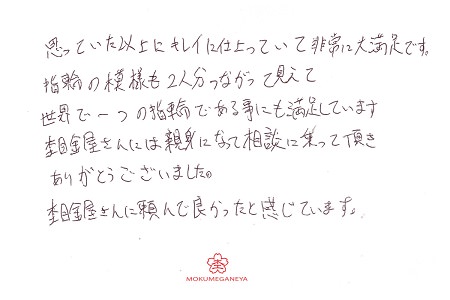 思っていた以上にキレイに仕上っていて非常に大満足です。
指輪の模様も2人分つながって見えて
世界で一つの指輪である事にも満足しています
杢目金屋さんには親身になって相談に乗って頂き
ありがとうございました。
杢目金屋さんに頼んで良かったと感じています。
MOKUMEGANEYA